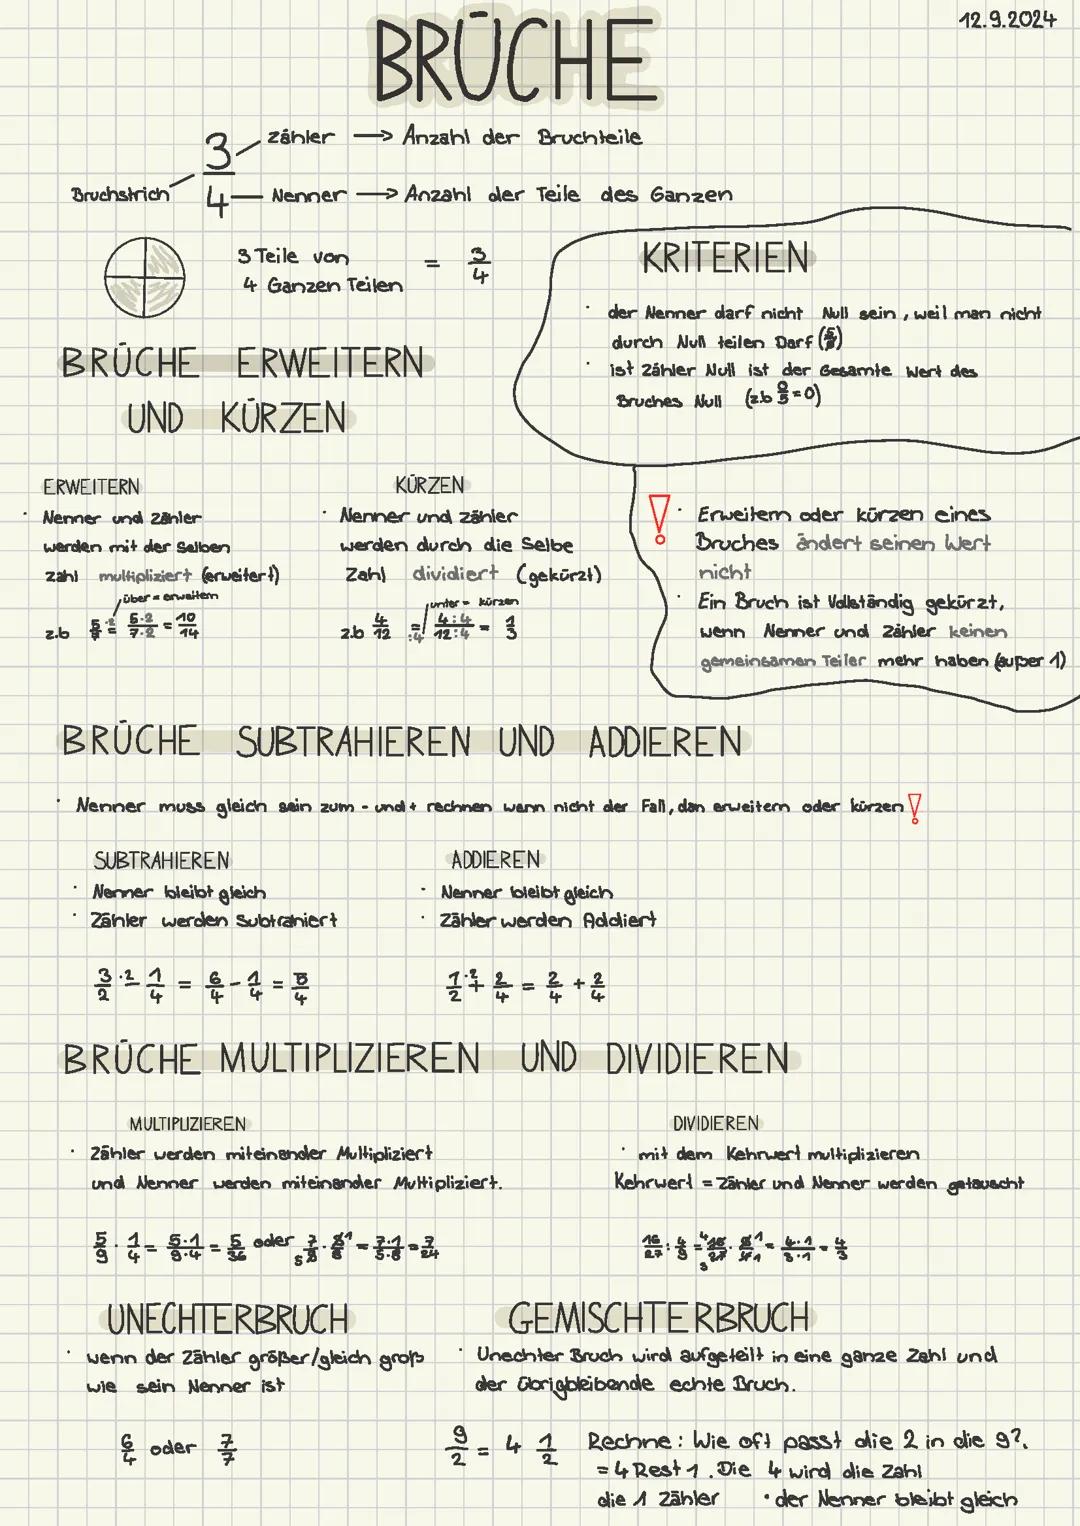 12.9.2024
BRÜCHE
3/4
Zähler → Anzahl der Bruchteile
Bruchstrich
Nenner → Anzahl der Teile des Ganzen
3 Teile von
4 Ganzen Teilen
= 3/4
KRITERIEN
· der Nenner darf nicht Null sein, weil man nicht
durch Null teilen Darf
· ist Zähler Null ist der Gesamte Wert des
Bruches Null (z.b 0/5 = 0)
BRÜCHE ERWEITERN
UND KÜRZEN
ERWEITERN
· Nenner und Zähler
werden mit der Selben
Zahl multipliziert (erweitert)
über = erweitern
z.b 5/7 ·2 = 5·2/7·2 = 10/14
KÜRZEN
· Nenner und Zähler
werden durch die Selbe
Zahl dividiert (gekürzt)
unter = kürzen
z.b 4/12 = :4 4:4/12:4 = 1/3
! · Erweitern oder kürzen eines
Bruches ändert seinen Wert
nicht
· Ein Bruch ist Vollständig gekürzt,
wenn Nenner und Zähler keinen
gemeinsamen Teiler mehr haben (außer 1)
BRÜCHE SUBTRAHIEREN UND ADDIEREN
· Nenner muss gleich sein zum - und + rechnen wenn nicht der Fall, dan erweitern oder kürzen!
SUBTRAHIEREN
· Nenner bleibt gleich
· Zähler werden Subtrahiert
3/2 ·2 - 1/4 = 6/4 - 1/4 = 5/4
ADDIEREN
· Nenner bleibt gleich
· Zähler werden Addiert
1/2 ·2 + 2/4 = 2/4 + 2/4
BRÜCHE MULTIPLIZIEREN UND DIVIDIEREN
MULTIPLIZIEREN
· Zähler werden miteinander Multipliziert
und Nenner werden miteinander Multipliziert.
5/9 · 1/4 = 5·1/9·4 = 5/36 oder
DIVIDIEREN
· mit dem Kehrwert multiplizieren
Kehrwert = Zähler und Nenner werden getauscht
16/27 : 4/9 = = 4·1/3·1 = 4/3
UNECHTERBRUCH
· wenn der Zähler größer/gleich groß
wie sein Nenner ist
6/4 oder 7/7
GEMISCHTERBRUCH
· Unechter Bruch wird aufgeteilt in eine ganze Zahl und
der übrigbleibende echte Bruch.
9/2 = 4 1/2
Rechne: Wie oft passt die 2 in die 9?.
= 4 Rest 1. Die 4 wird die Zahl
die 1 Zähler · der Nenner bleibt gleich